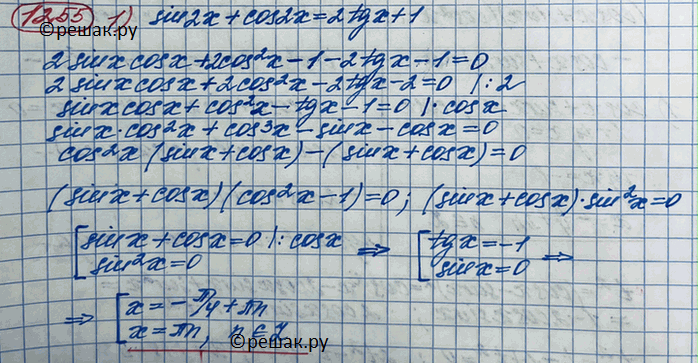 1255 1) sin2x + cos2x = 2tgx + 1
©решак.ру
2 sinx cosx + 2cos²x - 1 - 2tgx - 1 = 0
2 sinx cosx + 2cos²x - 2tgx - 2 = 0 |:2
sinx cosx + cos²x - tgx - 1 = 0 |· cosx
sinx · cos²x + cos³x - sinx - cosx = 0
cos²x (sinx + cosx) - (sinx + cosx) = 0
(sinx + cosx)(cos²x - 1) = 0; (sinx + cosx) · sin²x = 0
[ sinx + cosx = 0 |: cosx ⇒ [ tgx = -1 ⇒
sin²x = 0 sinx = 0
⇒ [ x = -π/4 + πn
x = πn, n ∈ Z
©решак.ру